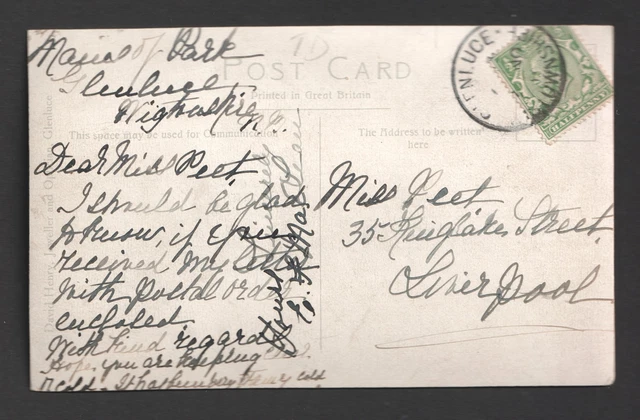 Mains of Park
Glenluce
Wigtownshire
N.B.
POST CARD
Printed in Great Britain
This space may be used for Communication
The Address to be written
here
Dear Miss Peet,
I should be glad
to know, if you
received my letter
with Postal Order
enclosed.
With kind regards
Hope you are keeping
cold
Yours
Miss Peet
35 Kinglake Street,
Liverpool
GLENLUCE
HALFPENNY
David Henry, Jeweller and Glenluce